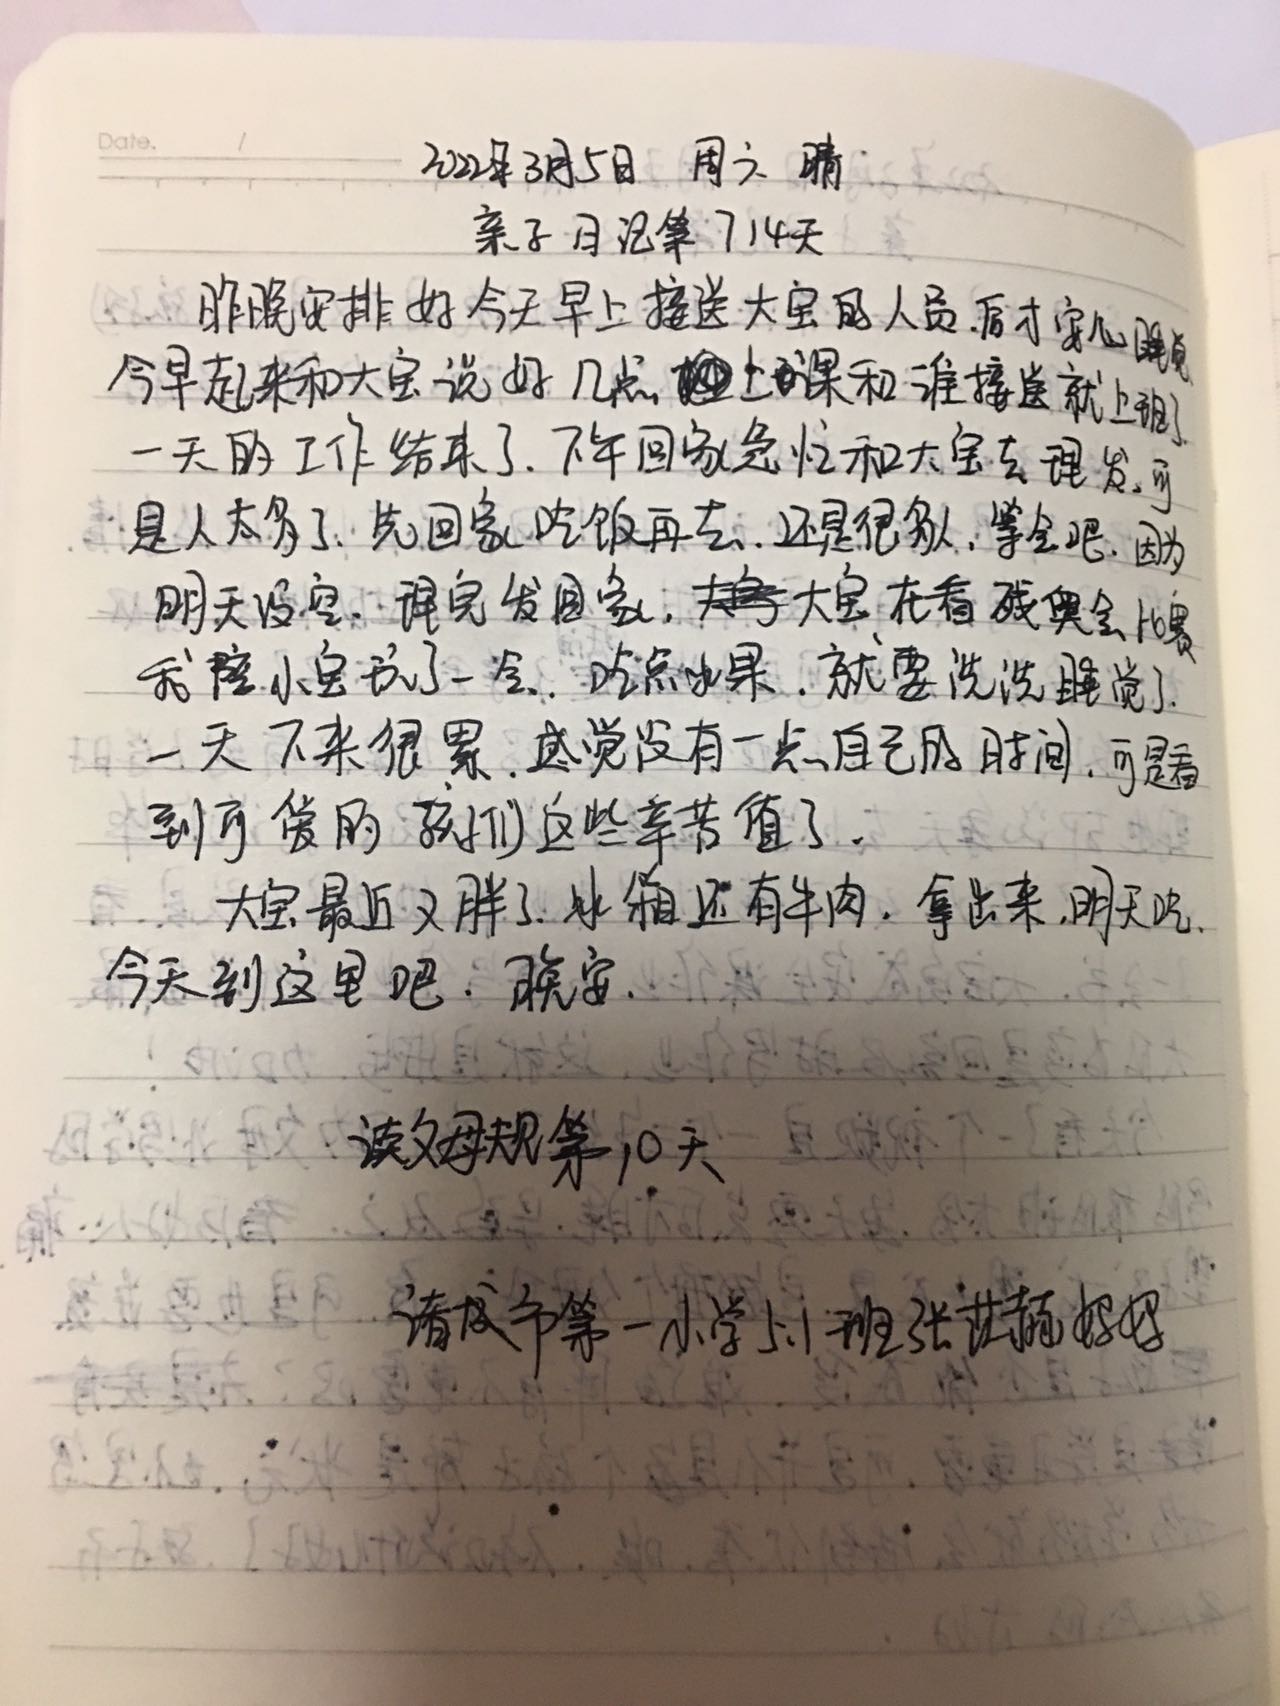 Date. /
2022年3月5日 周六 晴
亲子日记第714天
昨晚安排好今天早上接送大宝的人员.后才安心睡觉
今早起来和大宝说好几点上课和谁接送就上班了.
一天的工作结束了.下午回家急忙和大宝去理发.可
是人太多了.先回家吃饭再去.还是很多人,等会吧.因为
明天没空.理完发回家,大宝在看残奥会比赛
我陪小宝玩了一会.吃点水果.就要洗洗睡觉了.
一天下来很累.感觉没有一点自己的时间.可是看
到可爱的孩们这些辛苦值了.
大宝最近又胖了.冰箱还有牛肉.拿出来.明天吃.
今天到这里吧.晚安.
读父母规第10天
诸城市第一小学5.1班张 妈妈